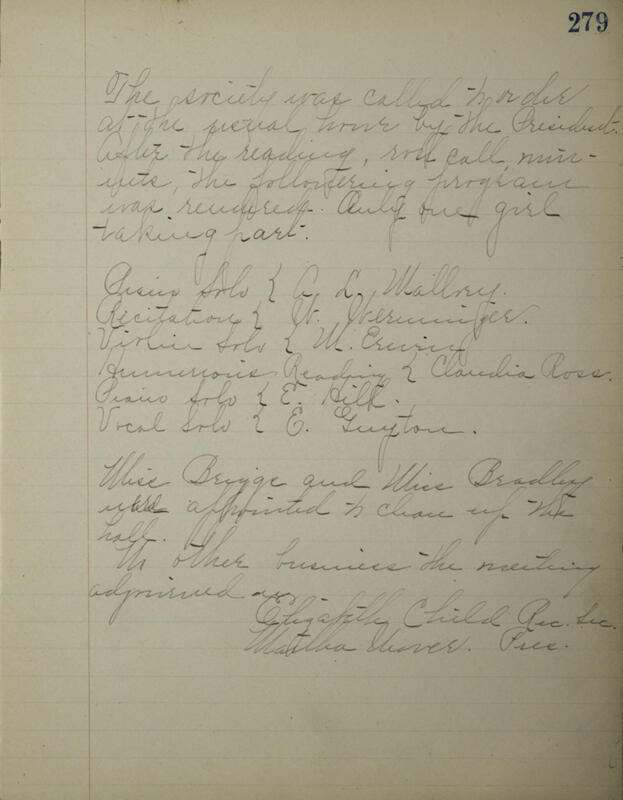 279
The society was called to order
at the usual hour by the President.
After the reading, roll call, min-
uts, the following program
was rendered. Only one girl
taking part.
Piano Solo { A. L. Mallory.
Recitation { W.
Violin Solo { M. Erwin
Humerious Reading { Claudia Ross.
Piano Solo { E. Hill.
Vocal Solo { E. Guyton.
Miss Briggs and Miss Bradley
were appointed to clean up the
hall.
No other business the meeting
adjourned
Elizabeth Child Rec. Sec.
Martha Pres.